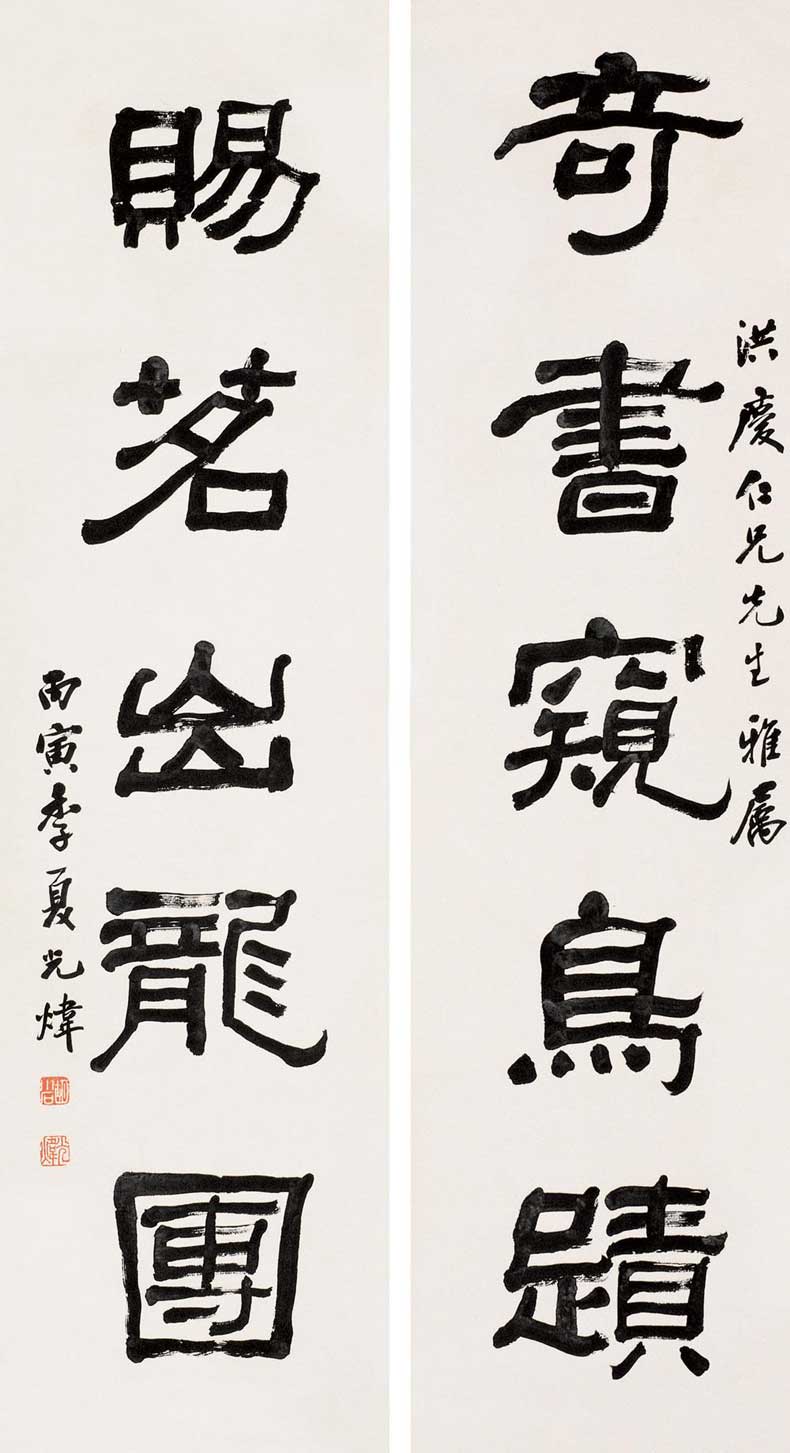 洪慶仁兄先生雅屬
奇書窺鳥蹟
賜茗出龍團
丙寅季夏光煒
光煒